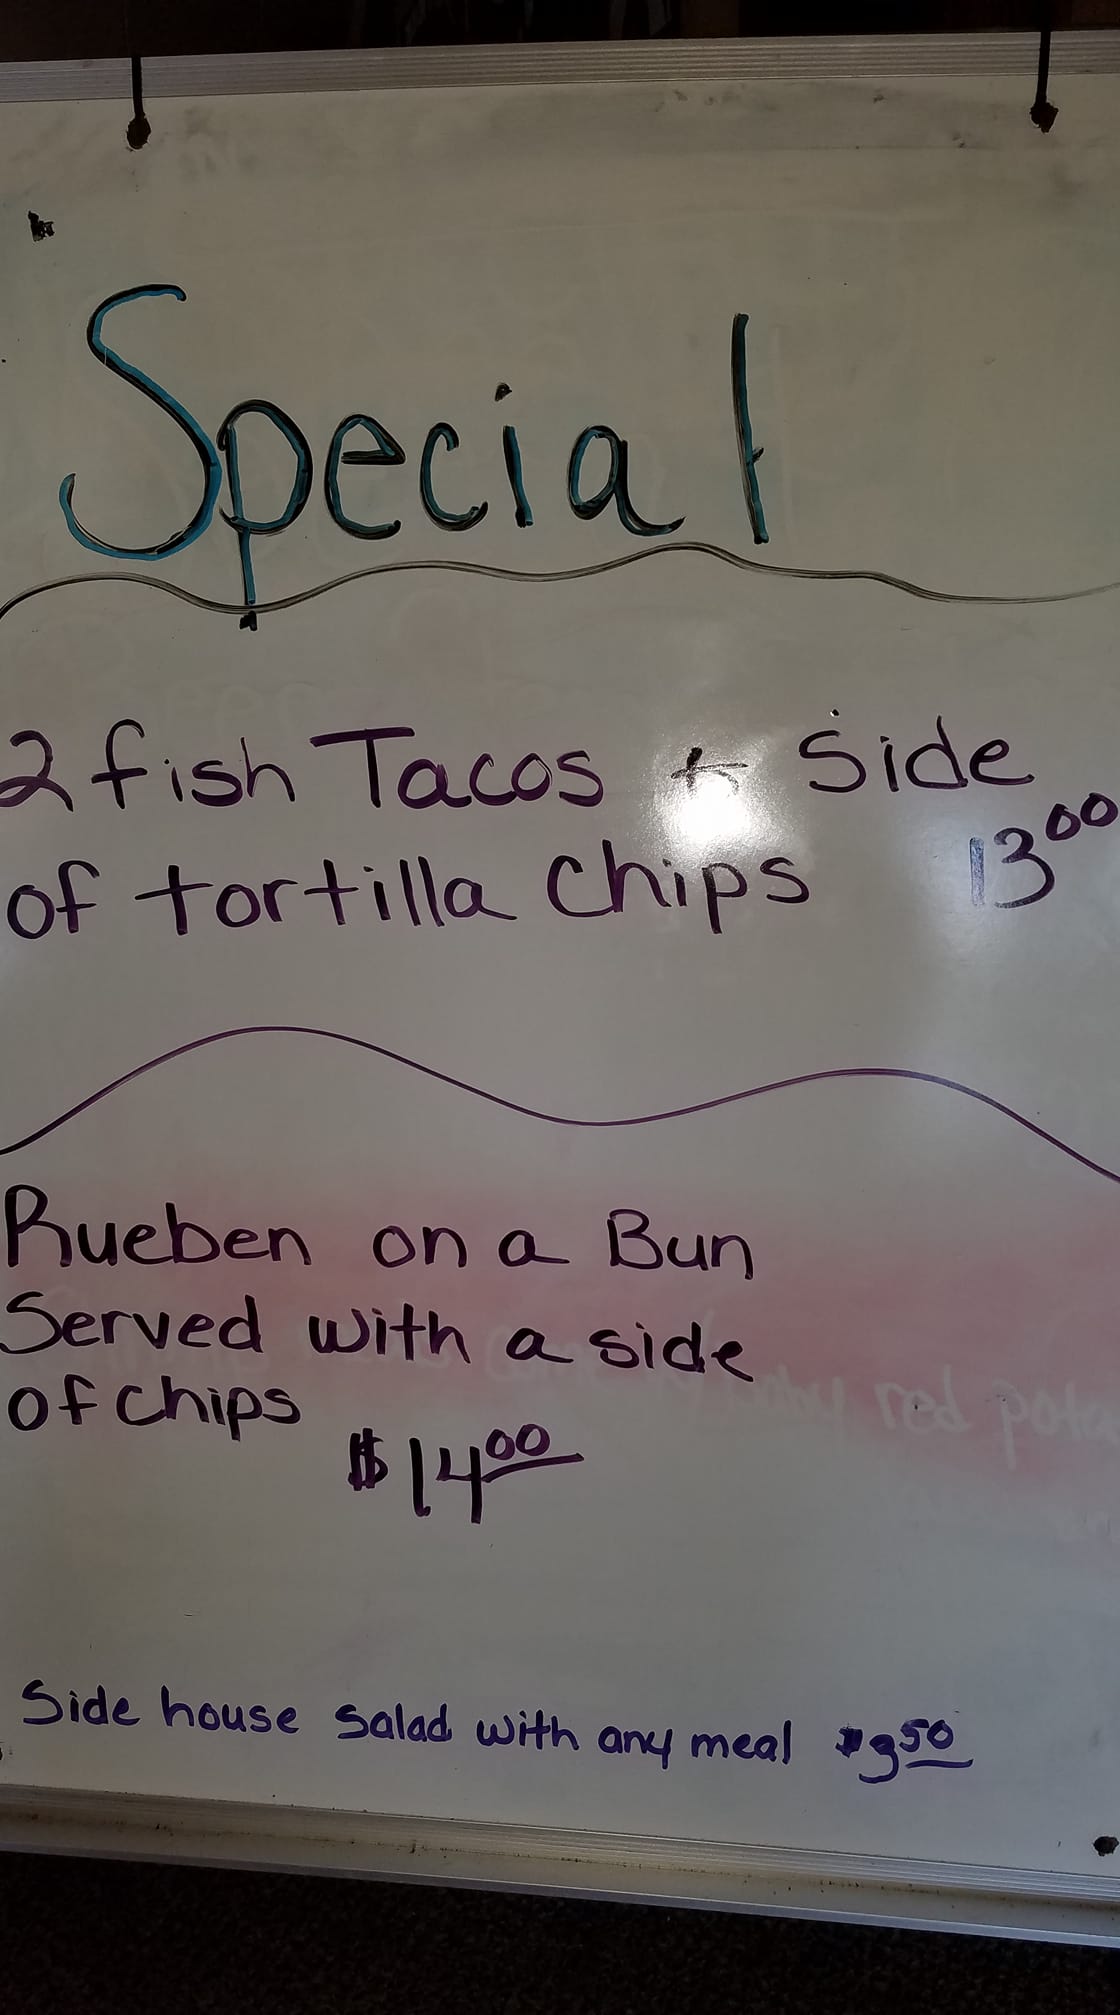 Special
2 fish Tacos + Side
of tortilla Chips 13⁰⁰
Rueben on a Bun
Served with a side
of chips
$14⁰⁰
Side house salad with any meal $3⁵⁰
red pota